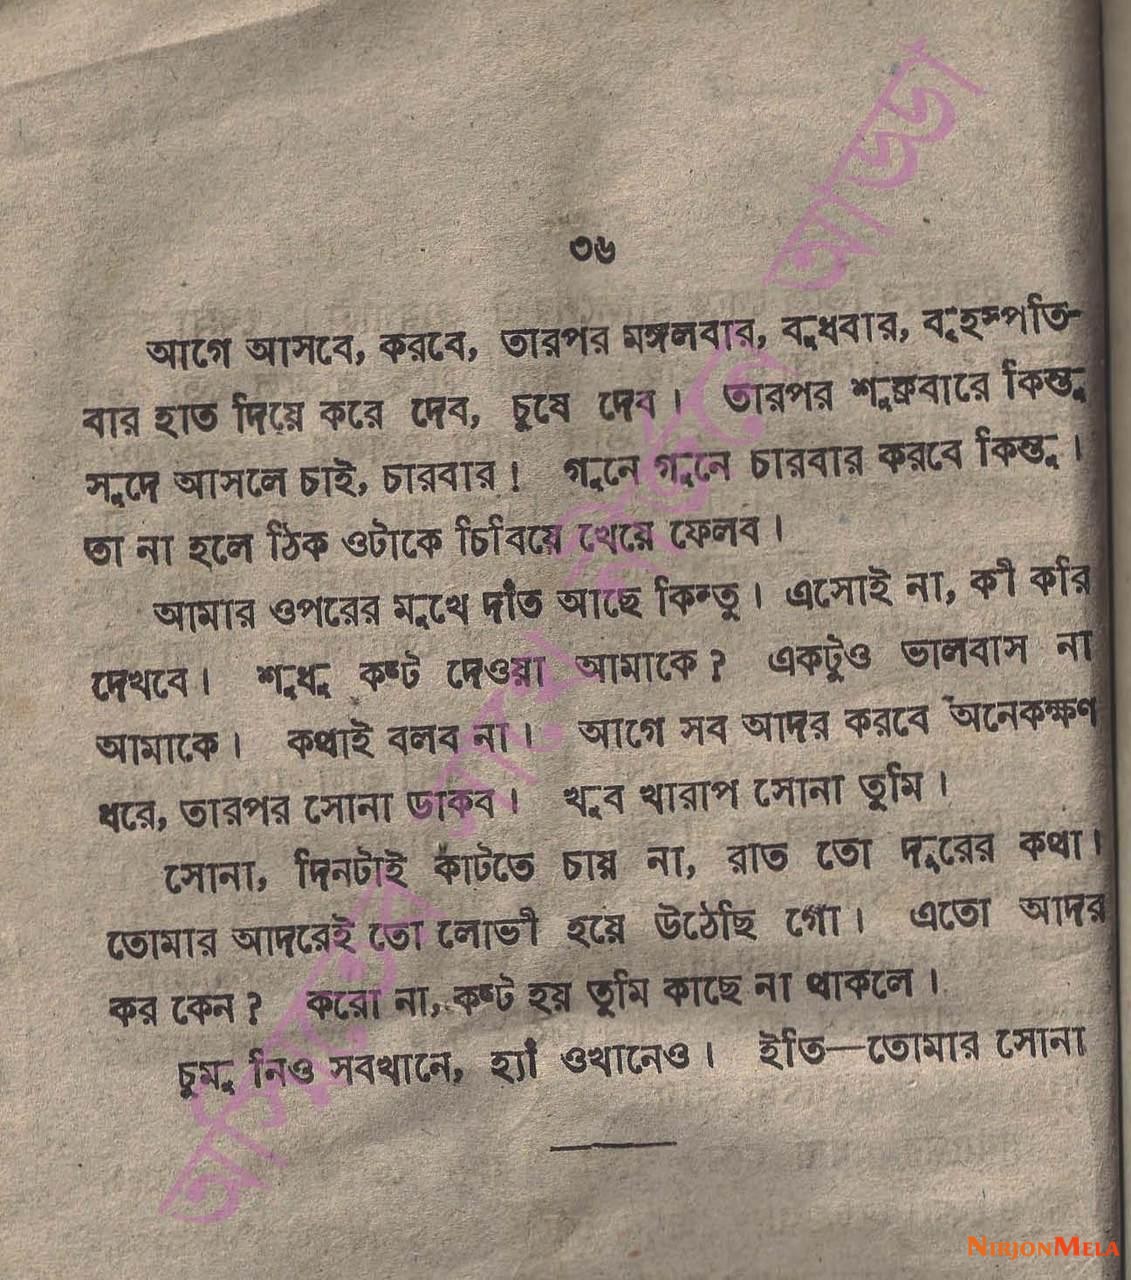 ৩৬
আগে আসবে, করবে, তারপর মঙ্গলবার, বুধবার, বৃহস্পতি-
বার হাত দিয়ে করে দেব, চুষে দেব। তারপর শুক্রবারে কিন্তু
সুদে আসলে চাই, চারবার! গুনে গুনে চারবার করবে কিন্তু।
তা না হলে ঠিক ওটাকে চিবিয়ে খেয়ে ফেলব।
আমার ওপরের মুখে দাঁত আছে কিন্তু। এসোই না, কী করি
দেখবে। শুধু কষ্ট দেওয়া আমাকে? একটুও ভালবাস না
আমাকে। কথাই বলব না। আগে সব আদর করবে অনেকক্ষণ
ধরে, তারপর সোনা ডাকব। খুব খারাপ সোনা তুমি।
সোনা, দিনটাই কাটতে চায় না, রাত তো দূরের কথা।
তোমার আদরেই তো লোভী হয়ে উঠেছি গো। এতো আদর
কর কেন? করো না, কষ্ট হয় তুমি কাছে না থাকলে।
চুমু নিও সবখানে, হ্যাঁ ওখানেও। ইতি—তোমার সোনা
NIRJONMELA